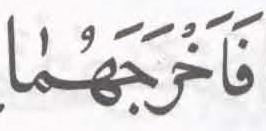 فَاَخْرَجَهُمَا